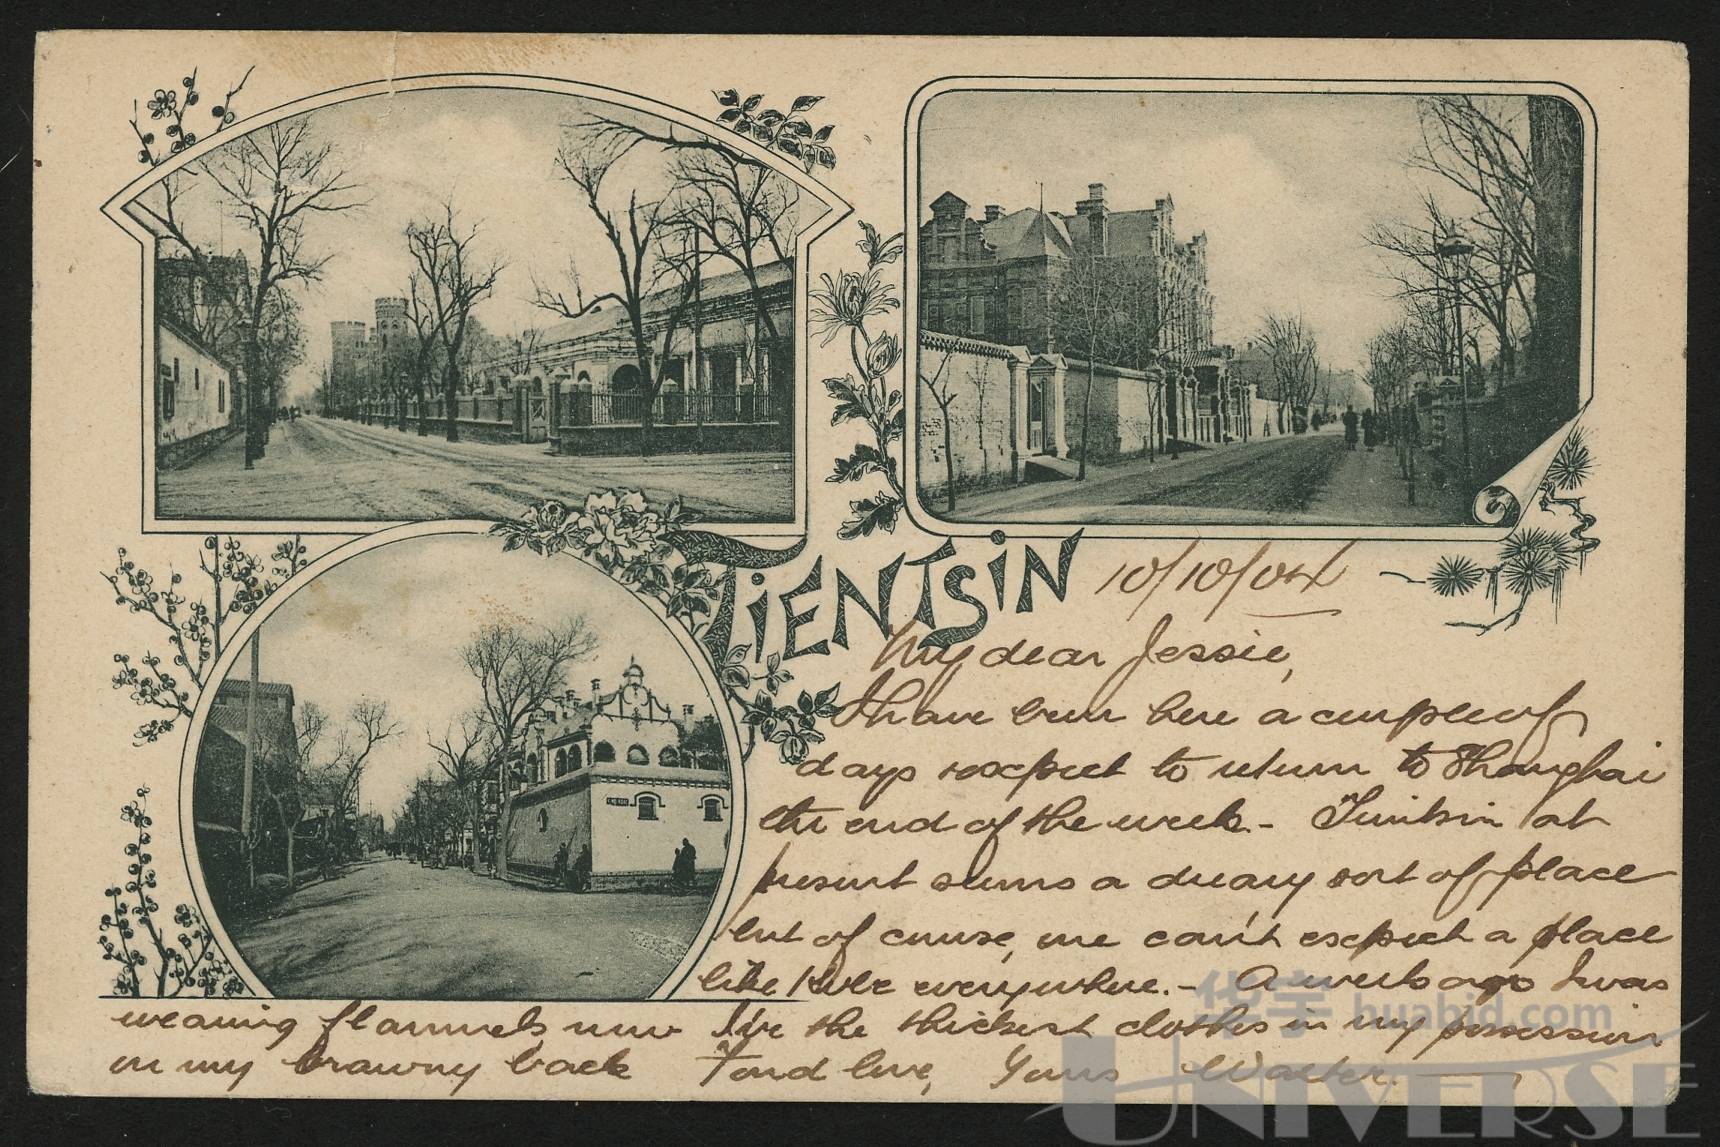 TIENTSIN
10/10/04
My dear Jessie,
I have been here a couple of
days & expect to return to Shanghai
the end of the week - Tientsin at
present seems a dreary sort of place
but of course, we can't expect a place
like Kobe everywhere. - A week ago I was
wearing flannels now I've the thickest clothes in my possession
on my brawny back Fond love, Yours Walter.
华宇 huabid.com
UNIVERSE